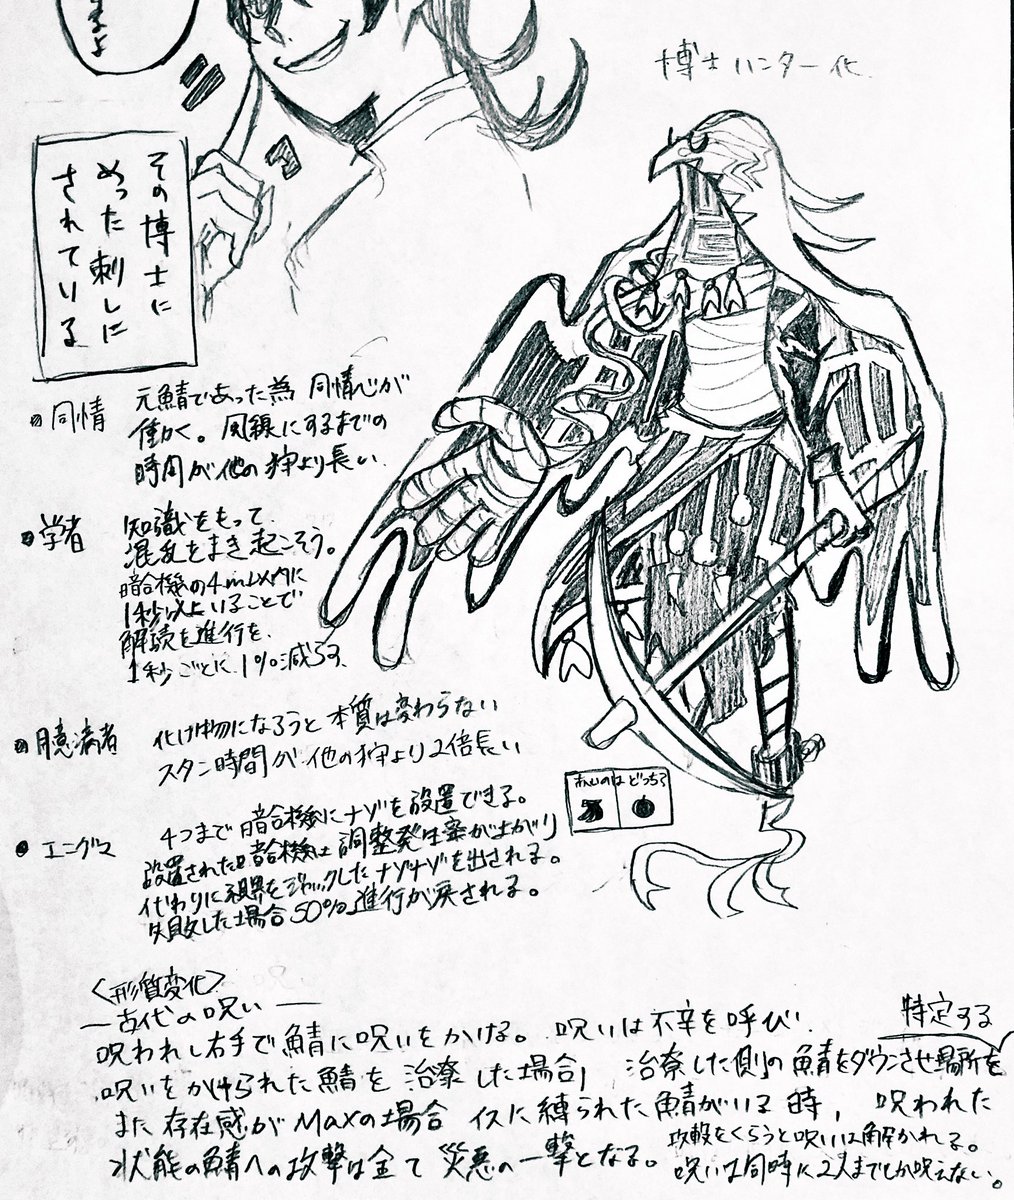 まよ
博士ハンター化
その博士に
めった刺しに
されている
同情
元鯖であった為 同情心が
働く。風線にするまでの
時間が他の狩より長い
学者
知識をもって
混乱をまき起こそう。
暗合機の4m以内に
1秒以上いることで
解読を進行を、
1秒ごとに1%減らす、
臆病者
化け物になろうと本質は変わらない
スタン時間が他の狩より2倍長い
エニグマ
4つまで暗合機にナゾを設置できる。
設置された暗合機は調整発生率が上がり
代わりに視界をジャックしたナゾナゾを出される。
失敗した場合50%進行が戻される。
赤いのはどっち?
<形質変化>
―古代の呪い―
呪われし右手で鯖に呪いをかける。呪いは不幸を呼び、
呪いをかけられた鯖を治療した場合、治療した側の鯖をダウンさせ場所を
特定する
また存在感がMaxの場合 イスに縛られた鯖がいる時、呪われた
状態の鯖への攻撃は全て災悪の一撃となる。
攻撃をくらうと呪いは解かれる。
呪いは同時に2人までしか呪えない。